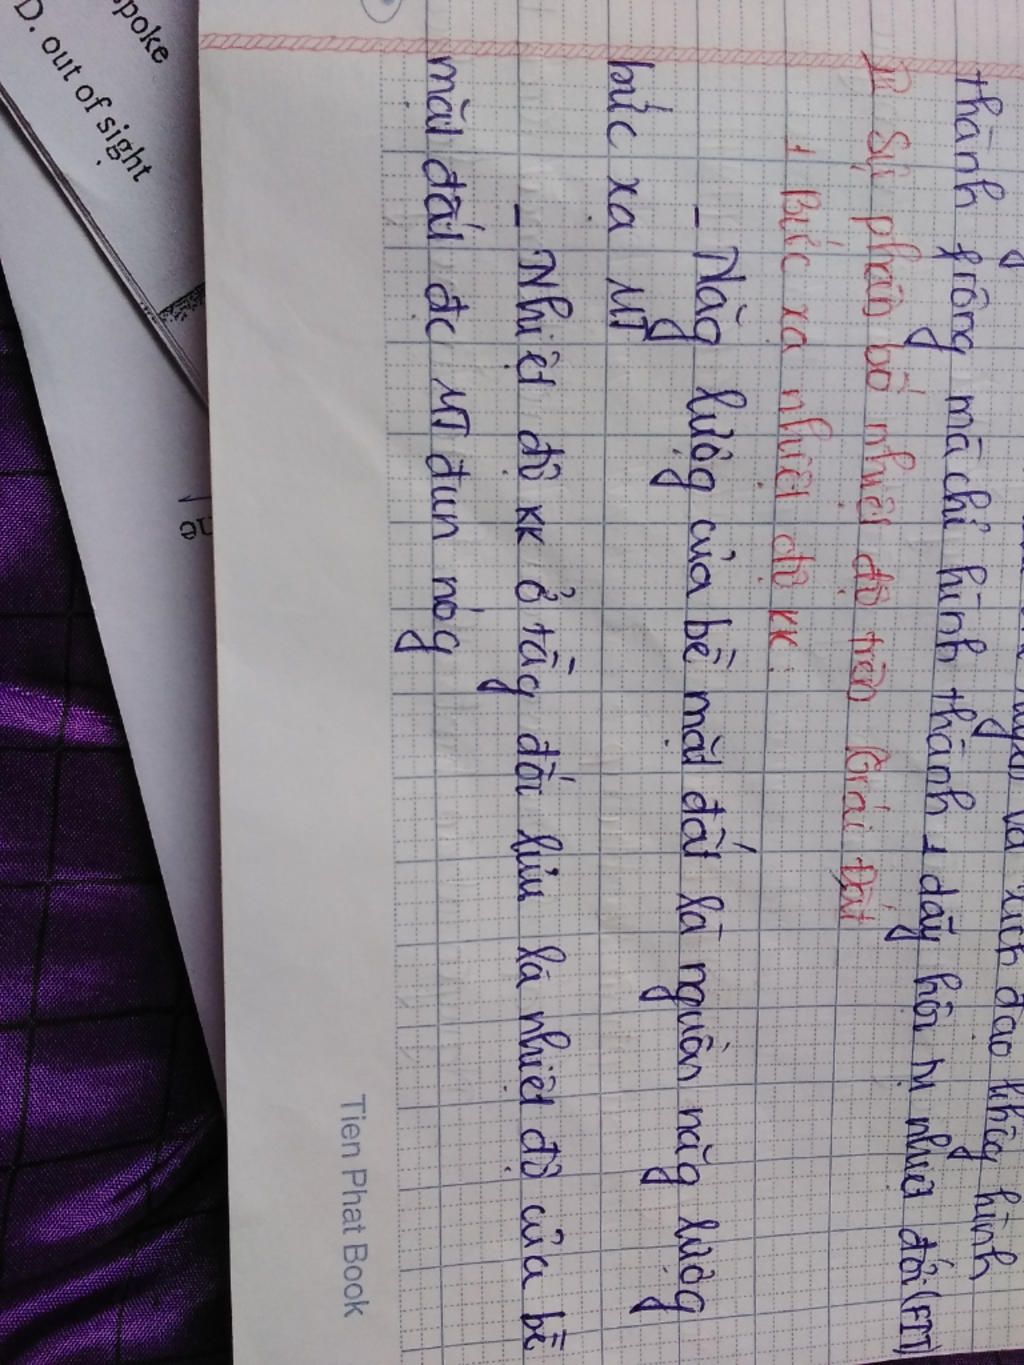 và xích đạo khg hình
thành frông mà chỉ hình thành 1 dãy hội tụ nhiệt đới (FIT)
II Sự phân bố nhiệt độ trên Trái Đất
1 Bức xạ nhiệt độ kk.
- Năg lượg của bề mặt đất là nguồn năg lượg
bức xạ MT
- Nhiệt độ kk ở tầg đối lưu là nhiệt độ của bề
mặt đất đc MT đun nóg
Tien Phat Book
spoke
D. out of sight